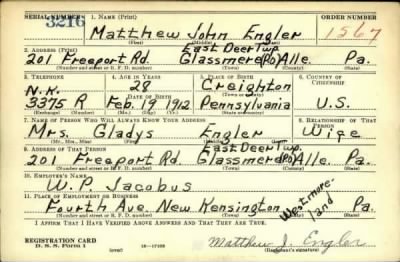 SERIAL NUMBER 1. NAME (Print) ORDER NUMBER
3216 Matthew John Engler 1567
(First) (Middle) (Last)
2. ADDRESS (Print) East Deer Twp.
201 Freeport Rd. Glassmere(PO) Alle. Pa.
(Number and street or R. F. D. number) (Town) (County) (State)
3. TELEPHONE 4. AGE IN YEARS 5. PLACE OF BIRTH 6. COUNTRY OF CITIZENSHIP
N.K. 28 Creighton
DATE OF BIRTH
3375 R Feb. 19 1912 Pennsylvania U.S.
7. NAME OF PERSON WHO WILL ALWAYS KNOW YOUR ADDRESS 8. RELATIONSHIP OF THAT PERSON
Mrs. Gladys Engler Wife
(Mr., Mrs., Miss) (First) (Middle) (Last)
9. ADDRESS OF THAT PERSON East Deer Twp.
201 Freeport Rd. Glassmere(PO) Alle. Pa.
(Number and street or R. F. D. number) (Town) (County) (State)
10. EMPLOYER'S NAME
W. P. Jacobus
11. PLACE OF EMPLOYMENT OR BUSINESS
Fourth Ave. New Kensington Westmoreland Pa.
(Number and street or R. F. D. number) (Town) (County) (State)
I AFFIRM THAT I HAVE VERIFIED ABOVE ANSWERS AND THAT THEY ARE TRUE.
REGISTRATION CARD
D. S. S. Form 1 (over) Matthew J. Engler
(Registrant's signature)